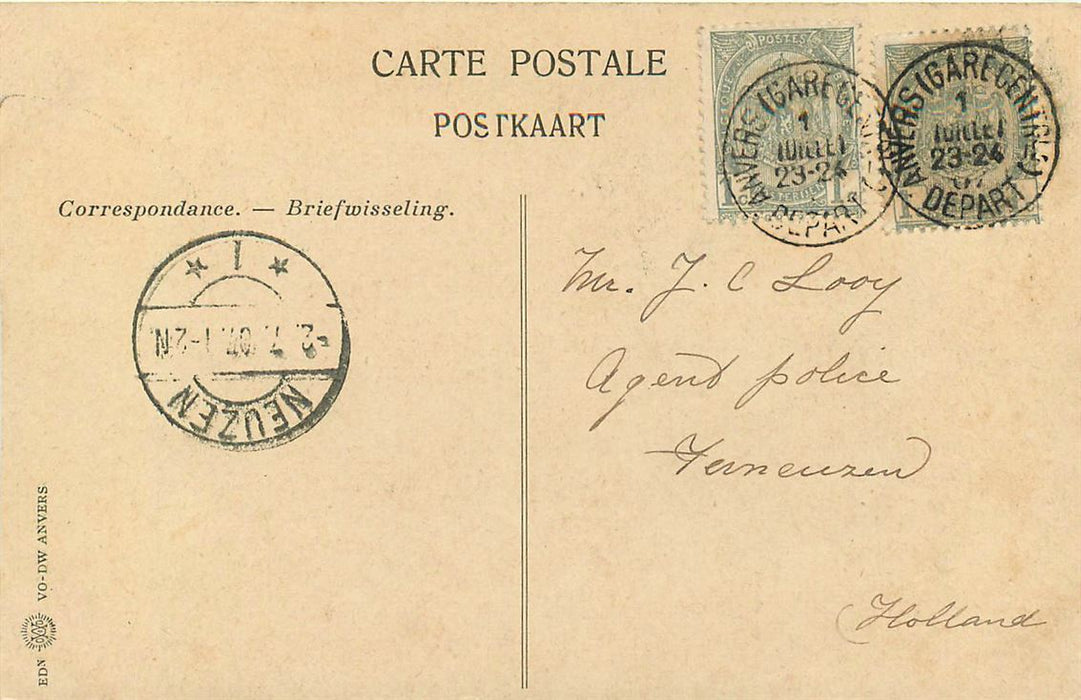 CARTE POSTALE
POSTKAART
POSTES
1
ANVERS (GARE CENTRALE)
1
JUILLET
23-24
DEPART
1
ANVERS (GARE CENTRALE)
1
JUILLET
23-24
07
DEPART
Correspondance. — Briefwisseling.
1
2.7.07.1-2N
NEUZEN
Mr. J. C Looy
Agent police
Terneuzen
Holland
EDN VO-DW ANVERS